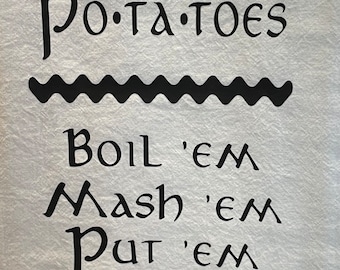 Po·ta·toes
Boil 'em
Mash 'em
Put 'em